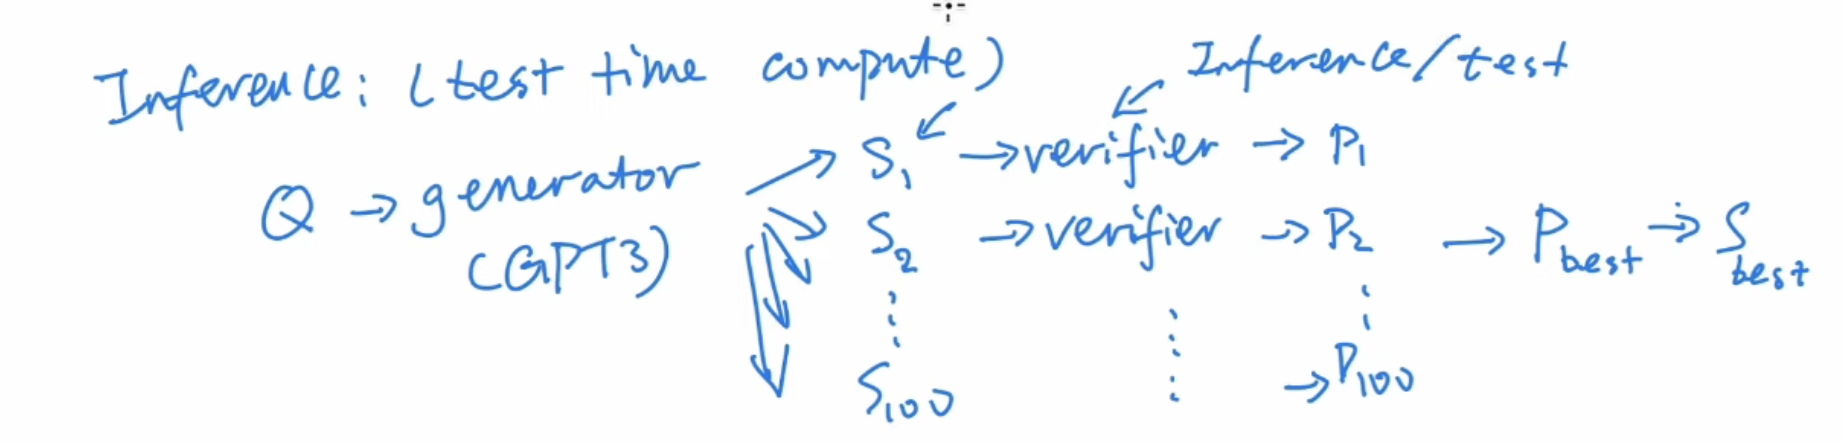 Inference: (test time compute) Inference/test
Q → generator → S1 → verifier → P1
(GPT3) S2 → verifier → P2 → Pbest → Sbest
S100 → P100